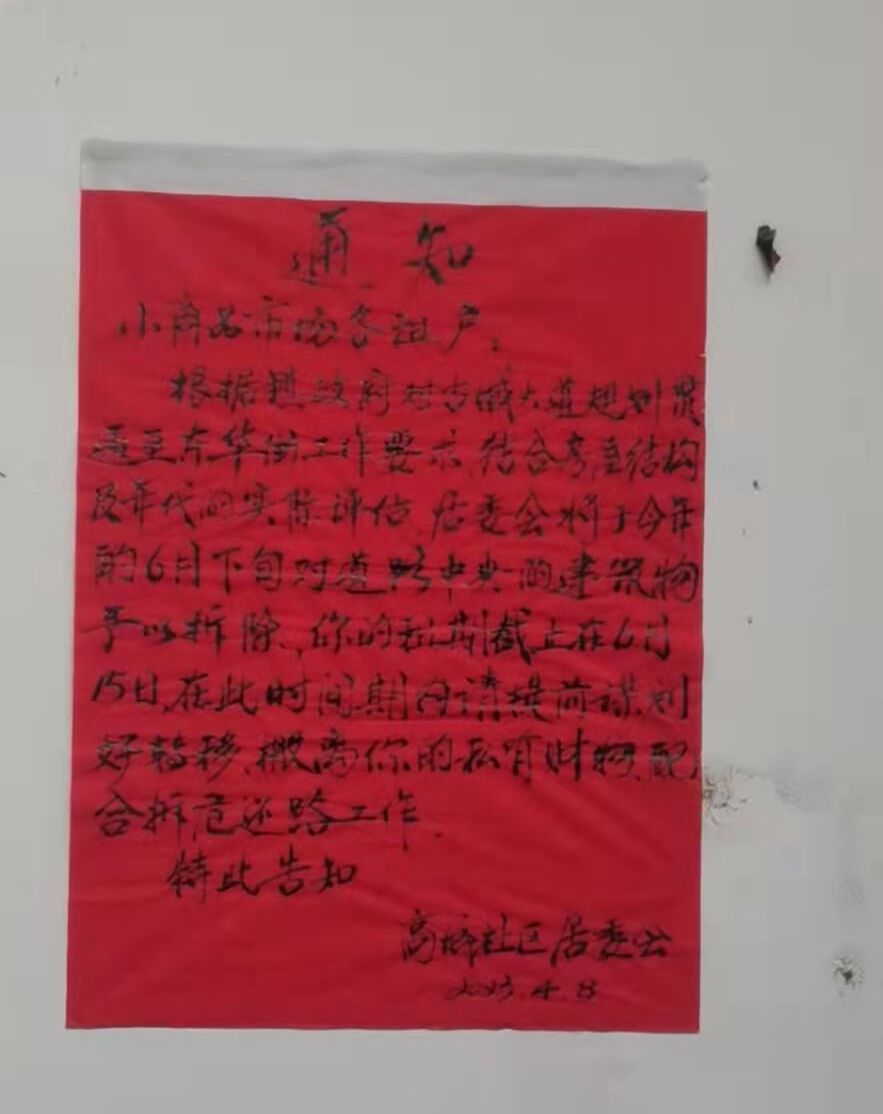 通知
小商品市场各租户：
根据镇政府对古城大道规划贯
通至东华街工作要求，结合房屋结构
及年代的实际评估，居委会将于今年
的6月下旬对道路中央的建筑物
予以拆除，你的租期截止在6月
15日，在此时间期内请提前谋划
好转移、搬离你的私有财物，配
合拆危还路工作。
特此告知
高城社区居委会
2023.4.8